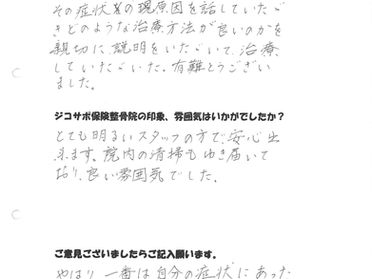 その症状の現原因を話していただ
きどのような治療方法が良いのかを
親切に説明をいただいて、治療
していただいた。有難とうござい
ました。
ジコサポ保険整骨院の印象、雰囲気はいかがでしたか？
とても明るいスタッフの方で、安心出
来ます。院内の清掃もゆき届いて
おり、良い雰囲気でした。
ご意見ございましたらご記入願います。
やはり一番は自分の症状にあった